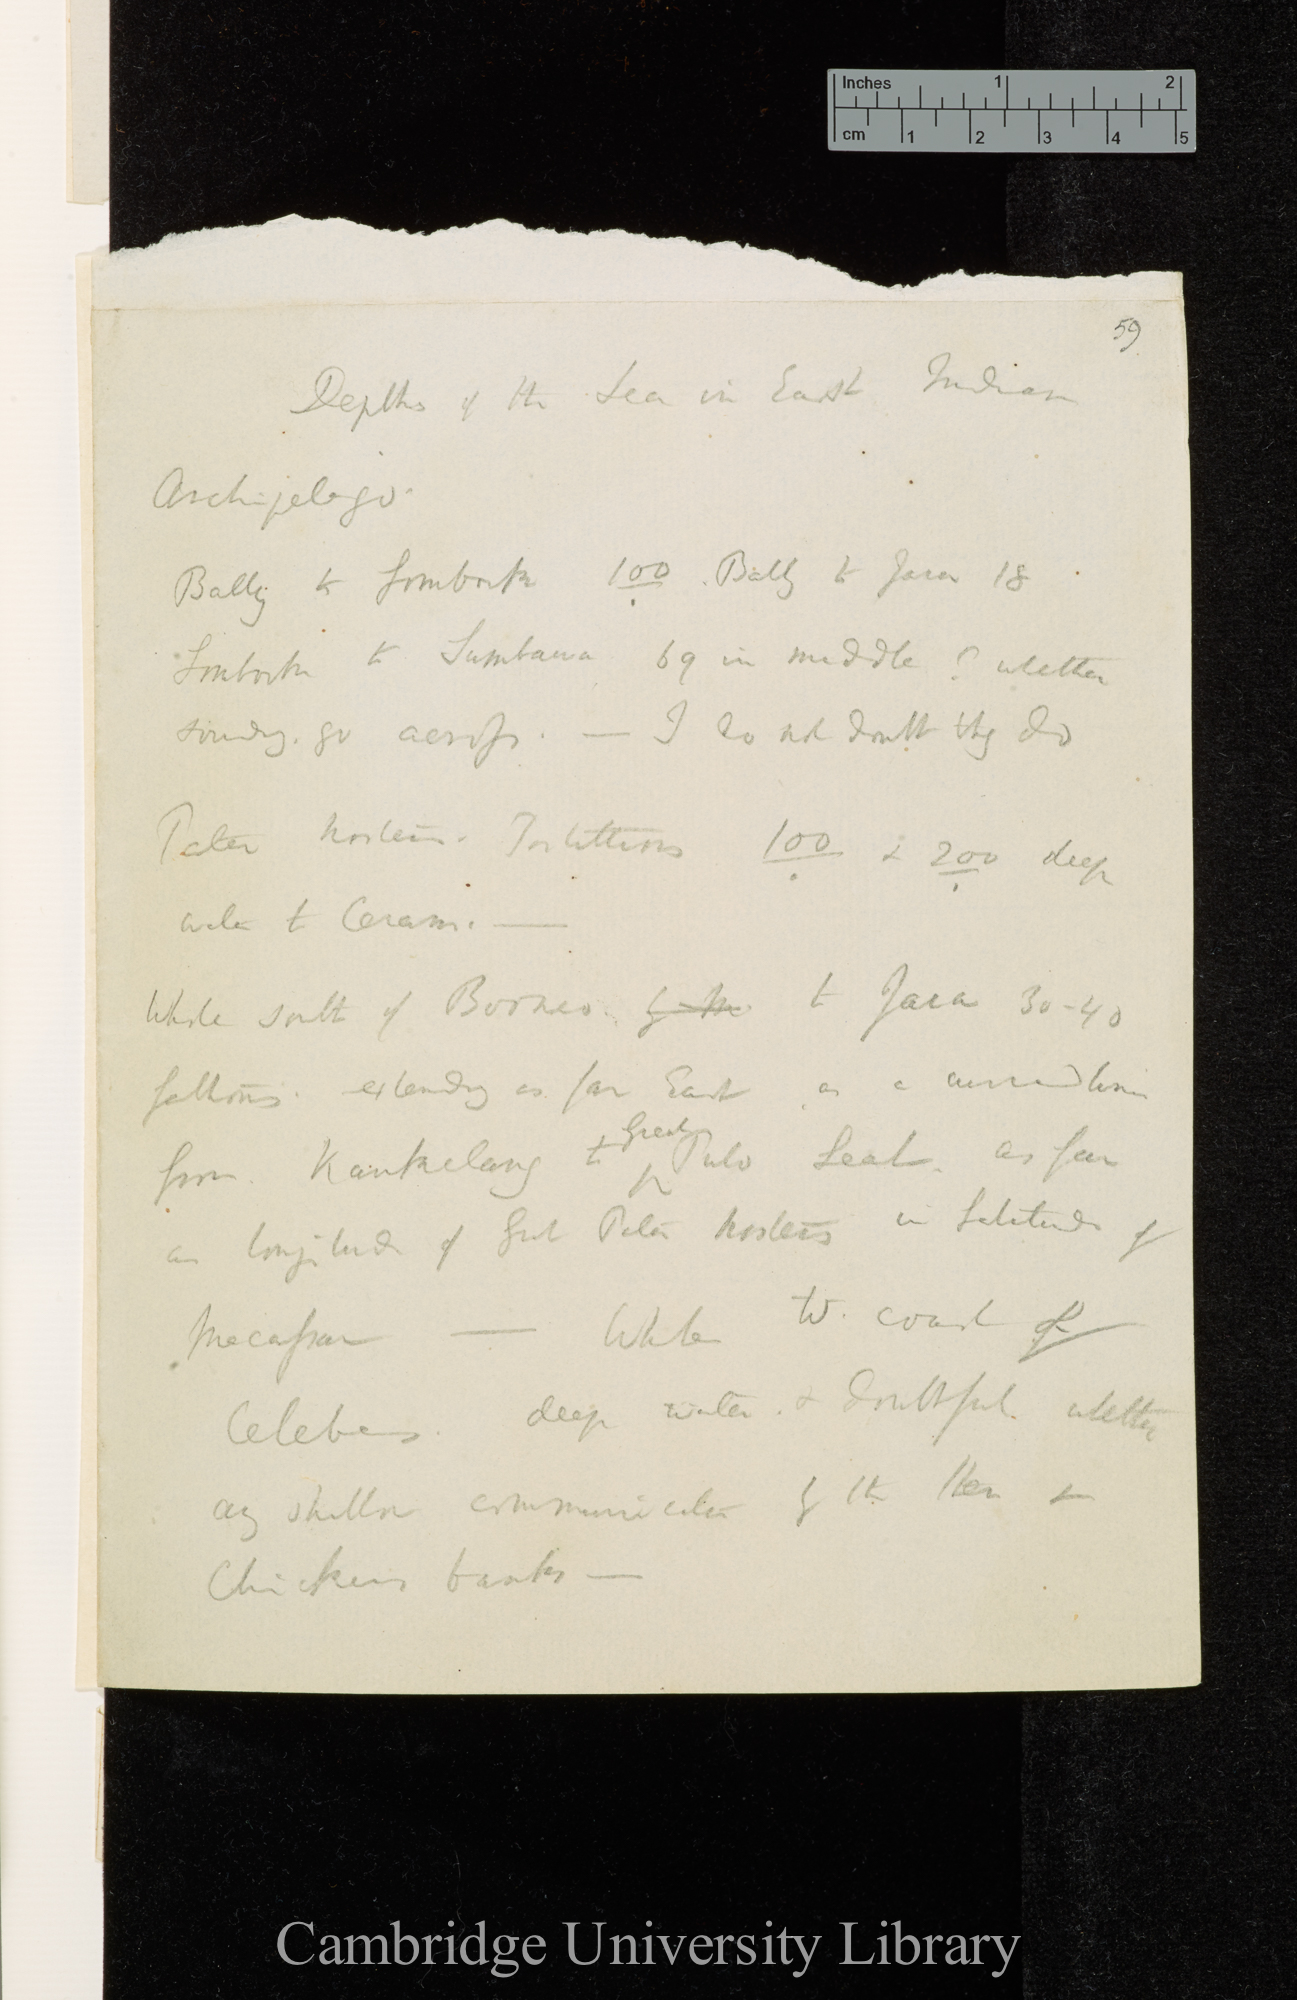 Inches 1 2
cm 1 2 3 4 5
59
Depths of the Sea in East Indian
Archipelago.
Bally to Lombock 100. Bally to Java 18
Lombock to Sumbawa 69 in middle ? whether
soundgs. go across. — I do not doubt they do
Pater Nosters. Postillions 100 & 200 deep
water to Ceram. —
Whole south of Borneo. to Java 30-40
fathoms. extending as far East as a curved line
from Kankelang to Great Pulo Leat. as far
as longitude of Pater Nosters in latitude of
Macassar — Whole W. coast of
Celebes. deep water. & doubtful. whether
any shallow communication by the Hen &
Chickens banks —
Cambridge University Library